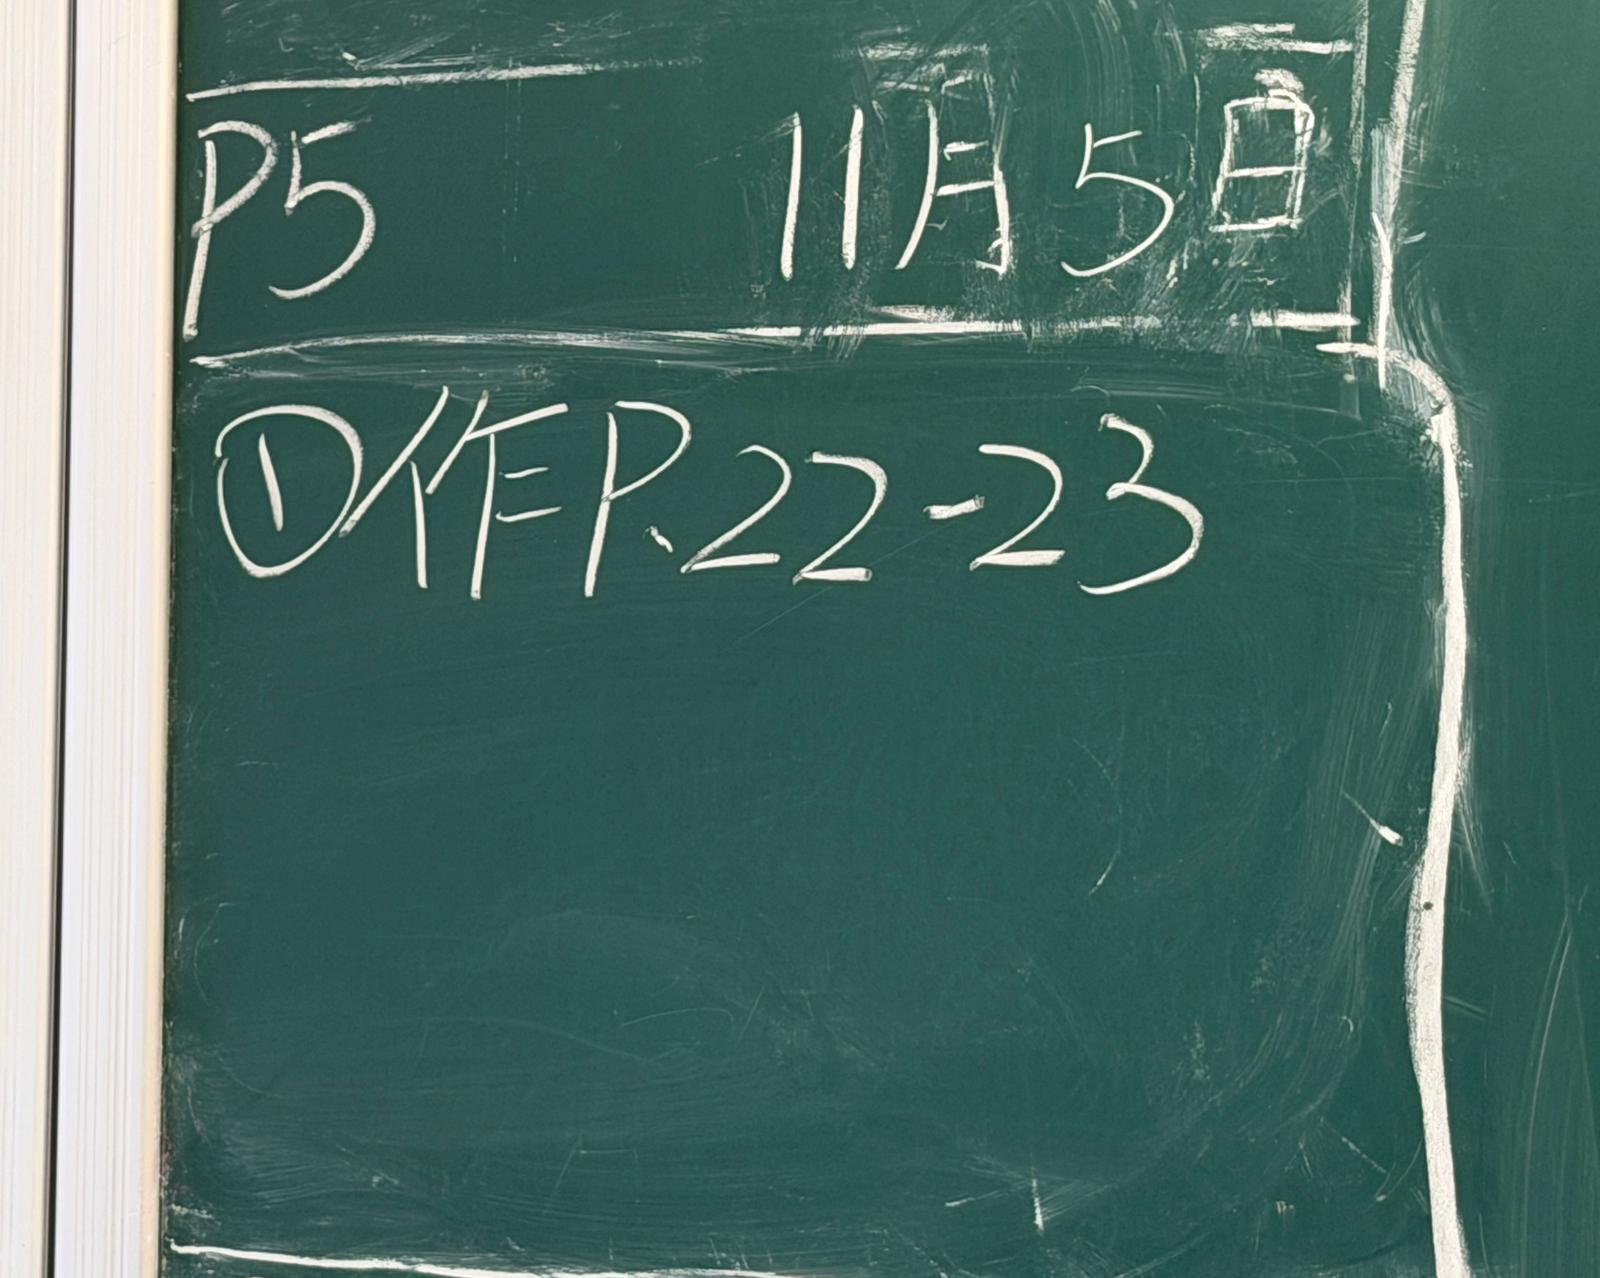 P5 11月5日
①作P.22-23